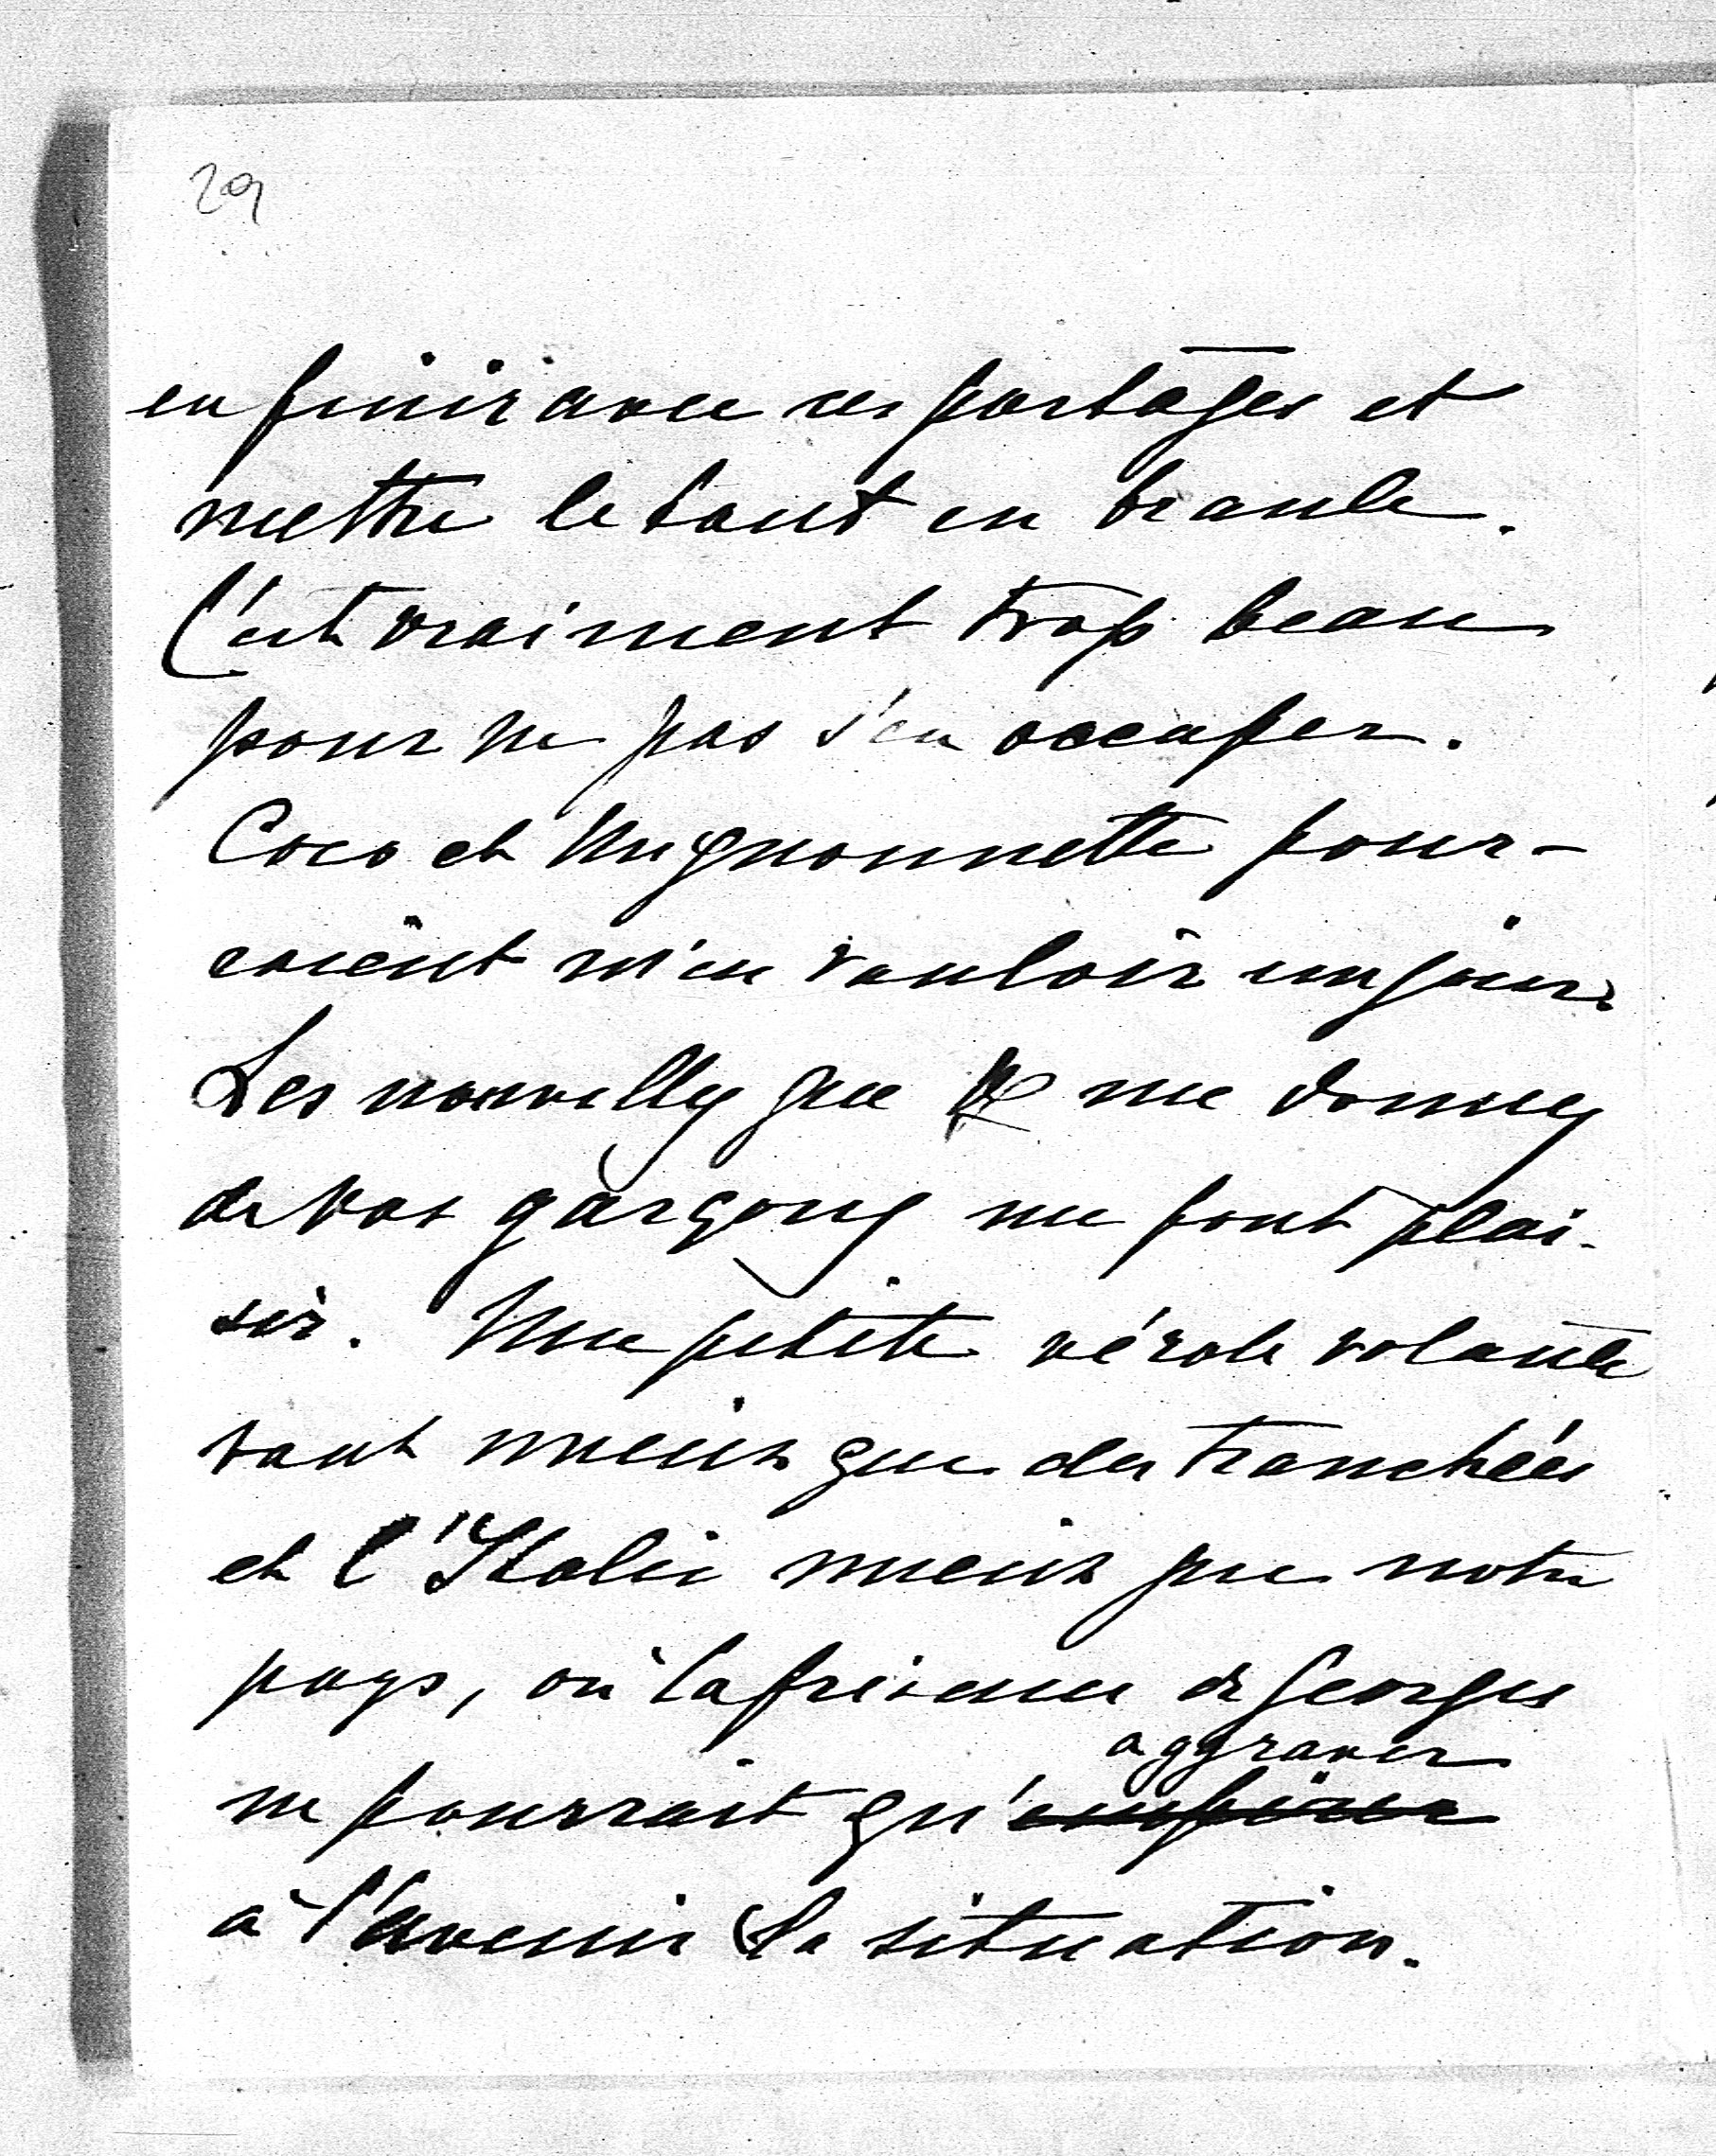 29
en finir avec ces partages et
mettre le tout en branle.
C'est vraiment trop beau
pour ne pas s'en occuper.
Coco et Mignonnette pour-
raient m'en vouloir un jour.
Les nouvelles que me donnez
de vos garçons me font plai-
sir. Une petite vérole volante
vaut mieux que des tranchées
et l'Italie mieux que notre
pays, où la présence de Georges
aggraver
ne pourrait qu'empirer
à l'avenir la situation.